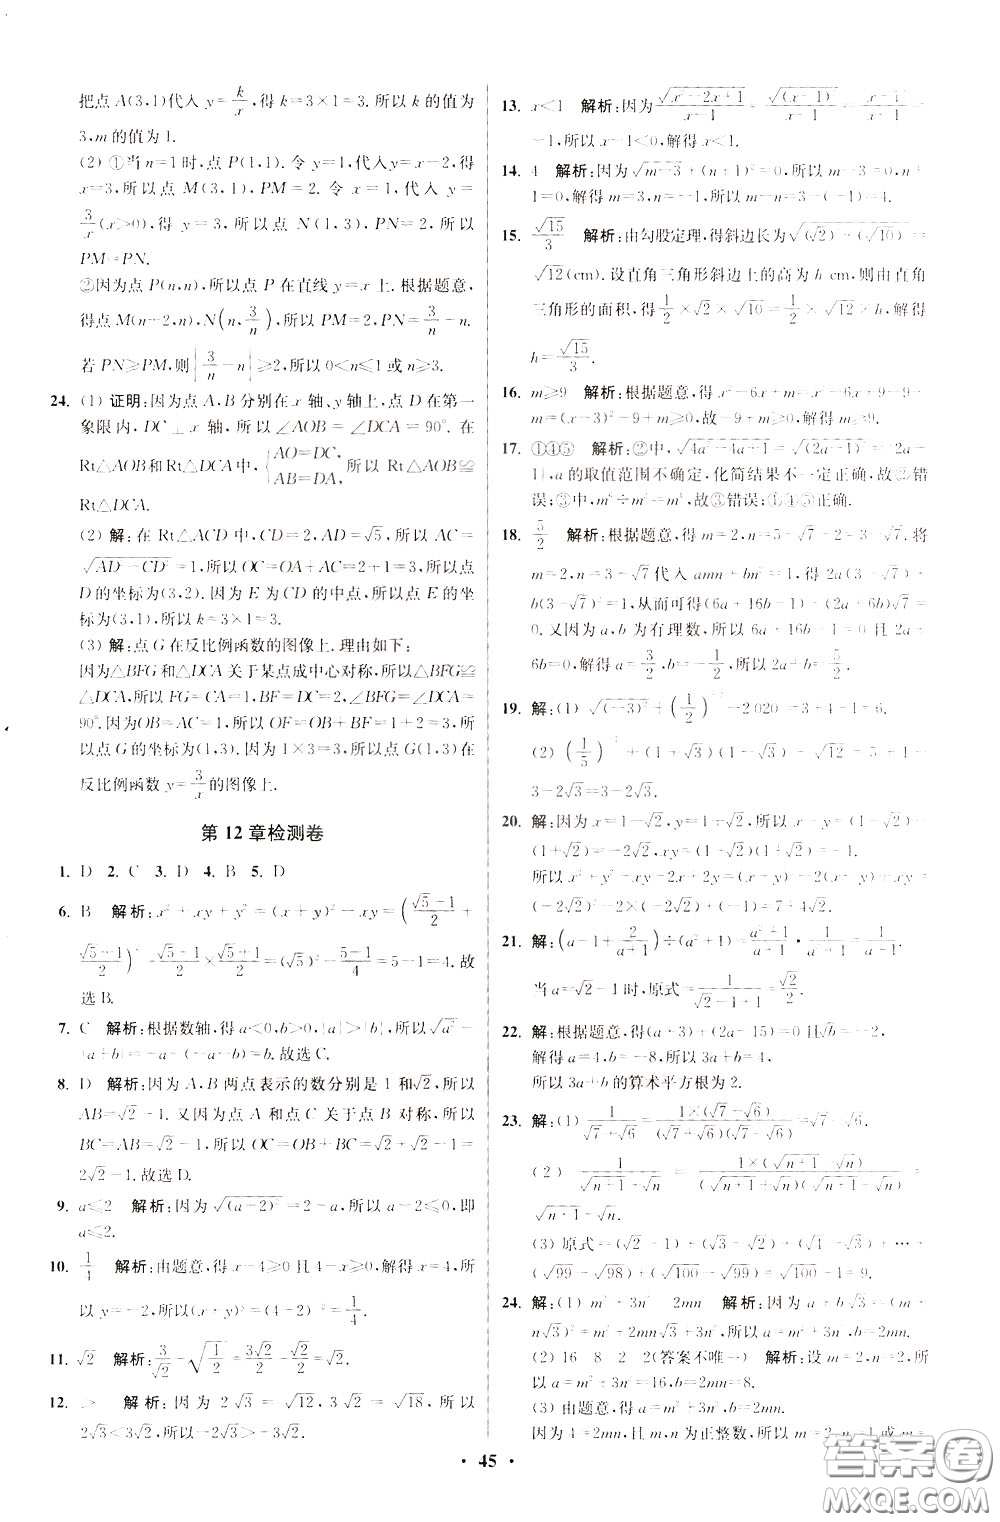 把点 A(3,1)代入 y=k/x,得 k=3×1=3. 所以 k 的值为
3,m 的值为 1.
(2) ①当 n=1时,点 P(1,1). 令 y=1,代入y=x-2,得
x=3,所以点 M(3,1),PM=2. 令 x=1,代入 y=
3/x(x>0),得 y=3,所以点 N(1,3),PN=2. 所以
PM=PN.
②因为点 P(n,n),所以点 P 在直线 y=x 上. 根据题意,
得点 M(n+2,n),N(n,3/n),所以 PM=2,PN=|3/n-n|.
若 PN≥PM,则|3/n-n|≥2,所以 0<n≤1 或 n≥3.
24. (1) 证明:因为点 A、B 分别在 x 轴、y 轴上,点 D 在第一
象限内,DC⊥x 轴,所以∠AOB=∠DCA=90°. 在
Rt△AOB和Rt△DCA中,{AO=DC, AB=DA, 所以 Rt△AOB≌
Rt△DCA.
(2) 解:在 Rt△ACD 中,CD=2,DA=√5,所以 AC=
√(AD²-CD²)=1,所以 OC=OA+AC=2+1=3,所以点
D 的坐标为(3,2). 因为 E 为CD 的中点,所以点 E 的坐
标为(3,1),所以 k=3×1=3.
(3) 解:点 G 在反比例函数的图像上. 理由如下:
因为△BFG 和△DCA 关于某点成中心对称,所以△BFG≌
△DCA,所以 FG=CA=1,BF=DC=2,∠BFG=∠DCA=
90°. 因为OB=AC=1,所以 OF=OB+BF=1+2=3,所
以点 G 的坐标为(1,3). 因为 1×3=3,所以点G(1,3)在
反比例函数 y=3/x的图像上.
第 12 章检测卷
1. D 2. C 3. D 4. B 5. D
6. B 解析:x²+xy+y²=(x+y)²-xy=((√5-1)/2+
(√5+1)/2)²-(√5-1)/2×(√5+1)/2=(√5)²-(5-1)/4=5-1=4. 故
选 B.
7. C 解析:根据数轴,得 a<0,b>0,|a|>|b|,所以√a²-
|a+b|=-a-(-a-b)=b. 故选 C.
8. D 解析:因为 A、B 两点表示的数分别是 1 和√2,所以
AB=√2-1. 又因为点 A 和点 C 关于点 B 对称,所以
BC=AB=√2-1,所以 OC=OB+BC=√2+√2-1=
2√2-1. 故选 D.
9. a≤2 解析:因为√((a-2)²)=2-a,所以 a-2≤0,即
a≤2.
10. 1/4 解析:由题意,得 x-4≥0 且 4-x≥0,解得 x=4,所
以 y=-2,所以(x+y)⁻²=(4-2)⁻²=1/4.
11. √2 解析:3/√2-√(1/2)=3√2/2-√2/2=√2.
12. > 解析:因为 2√3=√12,3√2=√18,所以
2√3<3√2,所以-2√3>-3√2.
13. x<1 解析:因为√(x²-2x+1)/(x-1)=√((x-1)²)/(x-1)=|x-1|/(x-1)=
-1,所以 x-1<0,解得 x<1.
14. 4 解析:因为√(m-3)+(n+1)²=0,所以 m-3=0,n+
1=0,解得 m=3,n=-1,所以 m-n=3-(-1)=4.
15. √15/3 解析:由勾股定理,得斜边长为√((√2)²+(√10)²)=
√12(cm). 设直角三角形斜边上的高为 h cm,则由直角
三角形的面积,得1/2×√2×√10=1/2×√12×h,解得
h=√15/3.
16. m≥9 解析:根据题意,得 x²-6x+m=x²-6x+9-9+
m=(x-3)²-9+m≥0,故-9+m≥0,解得 m≥9.
17. ①④⑤ 解析:②中,√(4a²-4a+1)=√((2a-1)²)=|2a-
1|,a 的取值范围不确定,化简结果不一定正确,故②错
误;③中,m⁶÷m²=m⁴,故③错误;①④⑤正确.
18. 5/2 解析:根据题意,得 m=2,n=5-√7-2=3-√7. 将
m=2,n=3-√7代入 amn+bn²=1,得 2a(3-√7)+
b(3-√7)²=1,从而可得(6a+16b-1)-(2a+6b)√7=
0. 又因为 a、b 为有理数,所以 6a+16b-1=0 且 2a+
6b=0,解得 a=3/2,b=-1/2,所以 2a+b=5/2.
19. 解:(1) √((-3)²)+(1/2)⁻²-2 020⁰=3+4-1=6.
(2) (1/5)⁻¹+(1+√3)(1-√3)-√12=5+1-
3-2√3=3-2√3.
20. 解:因为 x=1-√2,y=1+√2,所以 x-y=(1-√2)-
(1+√2)=-2√2,xy=(1-√2)(1+√2)=-1.
所以 x²+y²-xy-2x+2y=(x-y)²-2(x-y)+xy=
(-2√2)²-2×(-2√2)+(-1)=7+4√2.
21. 解:(a-1+2/(a+1))÷(a²+1)=(a²+1)/(a+1)·1/(a²+1)=1/(a+1).
当 a=√2-1时,原式=1/(√2-1+1)=√2/2.
22. 解:根据题意,得(a+3)+(2a-15)=0 且√b=-2,
解得 a=4,b=-8,所以 3a+b=4,
所以 3a+b 的算术平方根为 2.
23. 解:(1) 1/(√7+√6)=1×(√7-√6)/((√7+√6)(√7-√6))=√7-√6.
(2) 1/(√(n+1)+√n)=1×(√(n+1)-√n)/((√(n+1)+√n)(√(n+1)-√n))=
√(n+1)-√n.
(3) 原式=(√2-1)+(√3-√2)+(√4-√3)+…+
(√99-√98)+(√100-√99)=√100-1=9.
24. 解:(1) m²+3n² 2mn 解析:因为 a+b√3=(m+
n√3)²=m²+2mn√3+3n²,所以 a=m²+3n²,b=2mn.
(2) 16 8 2 2(答案不唯一) 解析:设 m=n=2,所
以 a=m²+3n²=16,b=2mn=8.
(3) 由题意,得 a=m²+3n²,b=2mn.
因为 4=2mn,且 m、n 为正整数,所以 m=2,n=1或 m=
• 45 •
答案圈
MXQE.COM